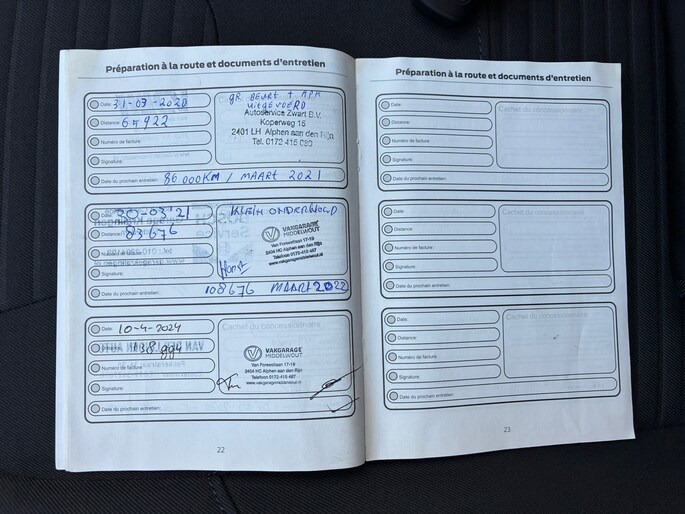 Préparation à la route et documents d'entretien
Date: 31-03-2020
Distance: 65922
Numéro de facture:
Signature:
Date du prochain entretien: 86 000 KM / MAART 2021
gr BEURT + APK
uitgevoerd
Autoservice Zwart B.V.
Koperweg 15
2401 LH Alphen aan den Rijn
Tel. 0172 415 080
Date: 20-03'21
Distance: 83676
Numéro de facture:
Signature:
Date du prochain entretien: 108676 MAART 2022
KLEIN ONDERHOUD
VAKGARAGE
MIDDELWOUT
Van Foreestlaan 17-19
2404 HC Alphen aan den Rijn
Telefoon 0172-415 487
www.vakgaragemiddelwout.nl
Date: 10-4-2024
Distance: 138 994
Numéro de facture:
Signature:
Date du prochain entretien:
Cachet du concessionnaire
VAKGARAGE
MIDDELWOUT
Van Foreestlaan 17-19
2404 HC Alphen aan den Rijn
Telefoon 0172-415 487
www.vakgaragemiddelwout.nl
22
Préparation à la route et documents d'entretien
Date:
Distance:
Numéro de facture:
Signature:
Date du prochain entretien:
Cachet du concessionnaire
Date:
Distance:
Numéro de facture:
Signature:
Date du prochain entretien:
Cachet du concessionnaire
Date:
Distance:
Numéro de facture:
Signature:
Date du prochain entretien:
Cachet du concessionnaire
23